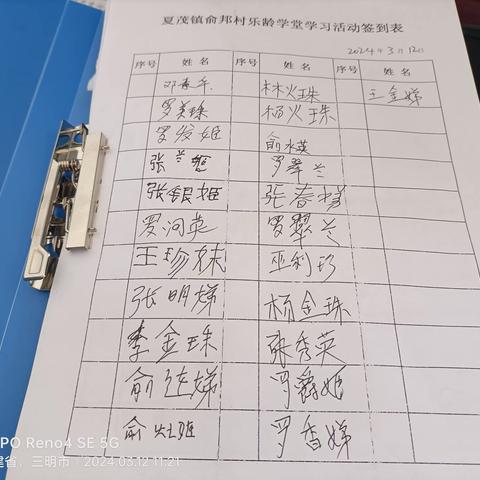 夏茂镇俞邦村乐龄学堂学习活动签到表
2024年3月12日
序号 姓名 序号 姓名 序号 姓名
林火珠 王金娣
罗美珠 杨火珠
罗发姬 俞水英
张兰姬 罗翠兰
张银姬 张春娣
罗河英 罗翠兰
王珍妹 巫利珍
张明娣 杨金珠
李金珠 张秀英
俞连娣 罗爵姬
俞 罗香娣
PO Reno4 SE 5G
建省，三明市 2024.03.12 11:21